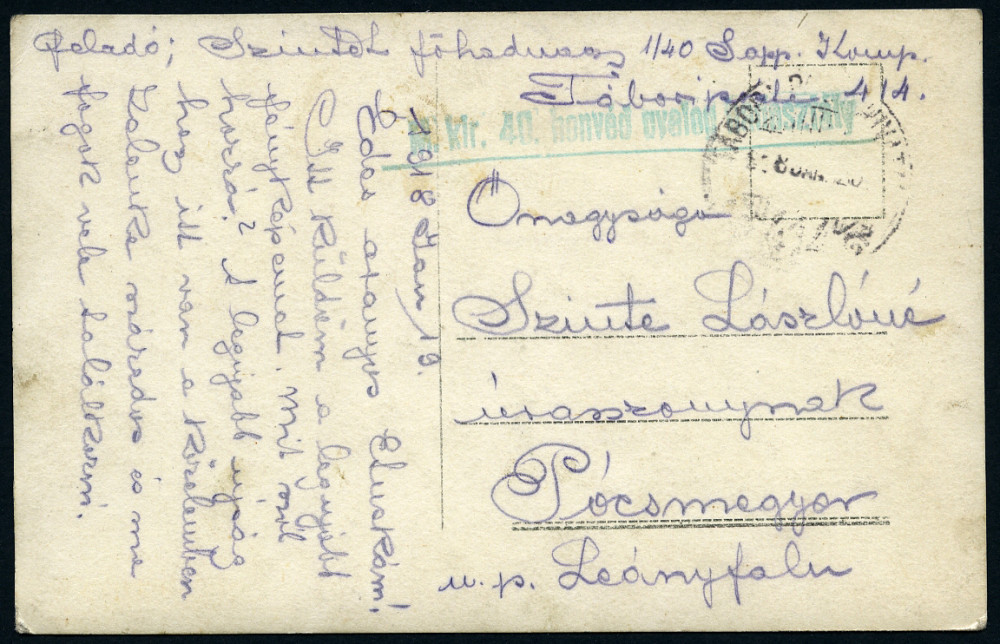 Feladó; Szinte L főhadnagy 1/40 Sapp. Komp.
Tábori posta 414.
M. kir. 40. honvéd gyalog
1918 Jan 19.
Édes aranyos Eluskám!
Itt küldöm a legújabb
fényképemet. Mit szól
hozzá? A legújabb újság
hogy itt van a közelemben
Zalánka százados és ma
fogok vele találkozni.
Őnagysága
Szinte Lászlóné
úrasszonynak
Pócsmegyer
u.p. Leányfalu